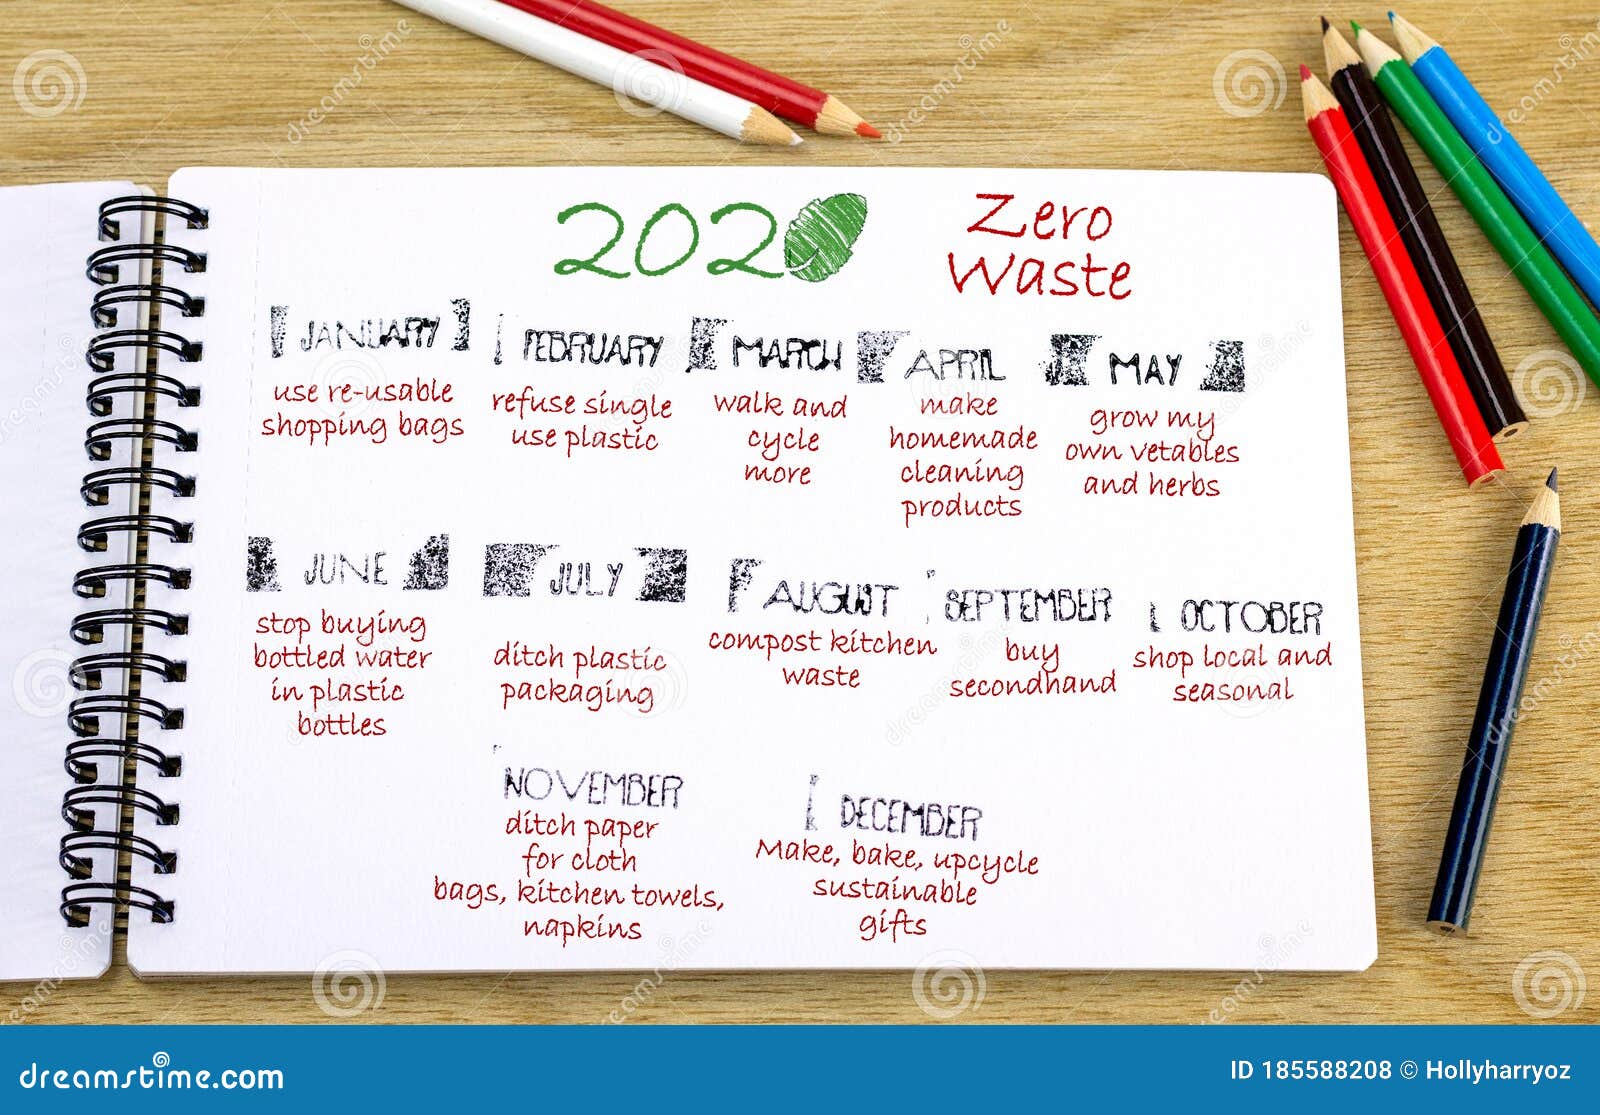 202
Zero
Waste
JANUARY
use re-usable
shopping bags
FEBRUARY
refuse single
use plastic
MARCH
walk and
cycle
more
APRIL
make
homemade
cleaning
products
MAY
grow my
own vetables
and herbs
JUNE
stop buying
bottled water
in plastic
bottles
JULY
ditch plastic
packaging
AUGUST
compost kitchen
waste
SEPTEMBER
buy
secondhand
OCTOBER
shop local and
seasonal
NOVEMBER
ditch paper
for cloth
bags, kitchen towels,
napkins
DECEMBER
Make, bake, upcycle
sustainable
gifts
dreamstime.com
ID 185588208 © Hollyharryoz